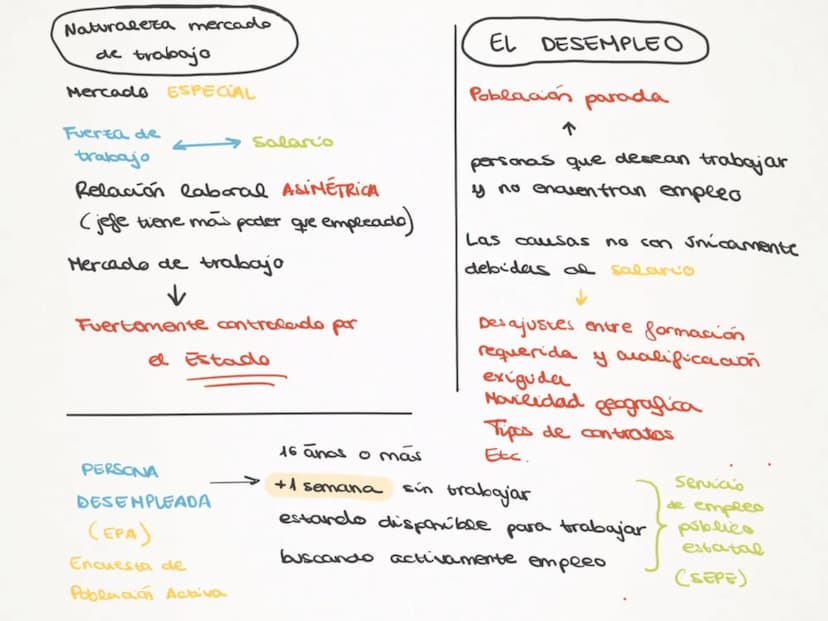 Naturaleza mercado
de trabajo
Mercado ESPECIAL
Fuerza de
trabajo
salario
Relación laboral ASIMÉTRICA
(jefe tiene más poder que empleado)
Mercado de trabajo
Fuertemente controlado por
el Estado
EL DESEMPLEO
Población parada
personas que desean trabajar
y no encuentran empleo
Las causas no son únicamente
debidas al salario
Desajustes entre formación
requerida y cualificación
exigida
Movilidad geografica
Tipos de contratos
Etc.
PERSONA
DESEMPLEADA
(EPA)
Encuesta de
Población Activa
16 años o más
+1 semana sin trabajar
estando disponible para trabajar
buscando activamente empleo
Servicio
de empleo
público
estatal
(SEPE)